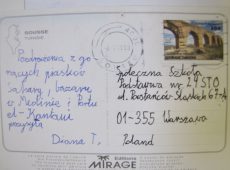 SOUSSE
Pozdrowienia z go-
rących piasków
Sahary, bazaru
w Medinie i Portu
el-Kantaui
przesyła
Diana T.
Społeczna Szkoła
Podstawowa nr 27 STO
ul. Powstańców Śląskich 67A
01-355 Warszawa
Poland
Editions
MIRAGE